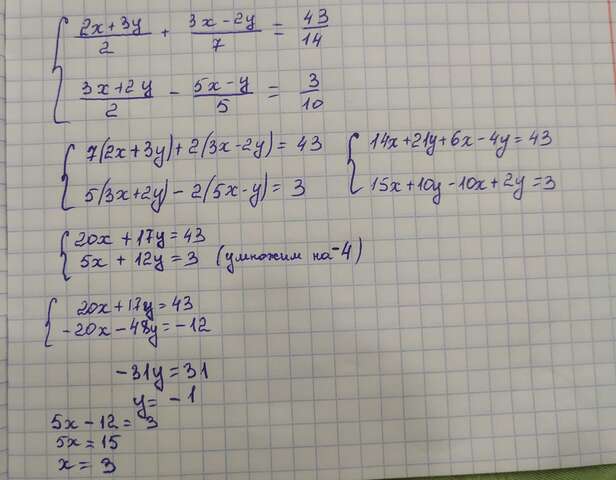 { (2x+3y)/2 + (3x-2y)/7 = 43/14
(3x+2y)/2 - (5x-y)/5 = 3/10
{ 7(2x+3y)+2(3x-2y)=43 { 14x+21y+6x-4y=43
5(3x+2y)-2(5x-y)=3 15x+10y-10x+2y=3
{ 20x+17y=43
5x+12y=3 (умножим на -4)
{ 20x+17y=43
-20x-48y=-12
-31y=31
y=-1
5x-12=3
5x=15
x=3